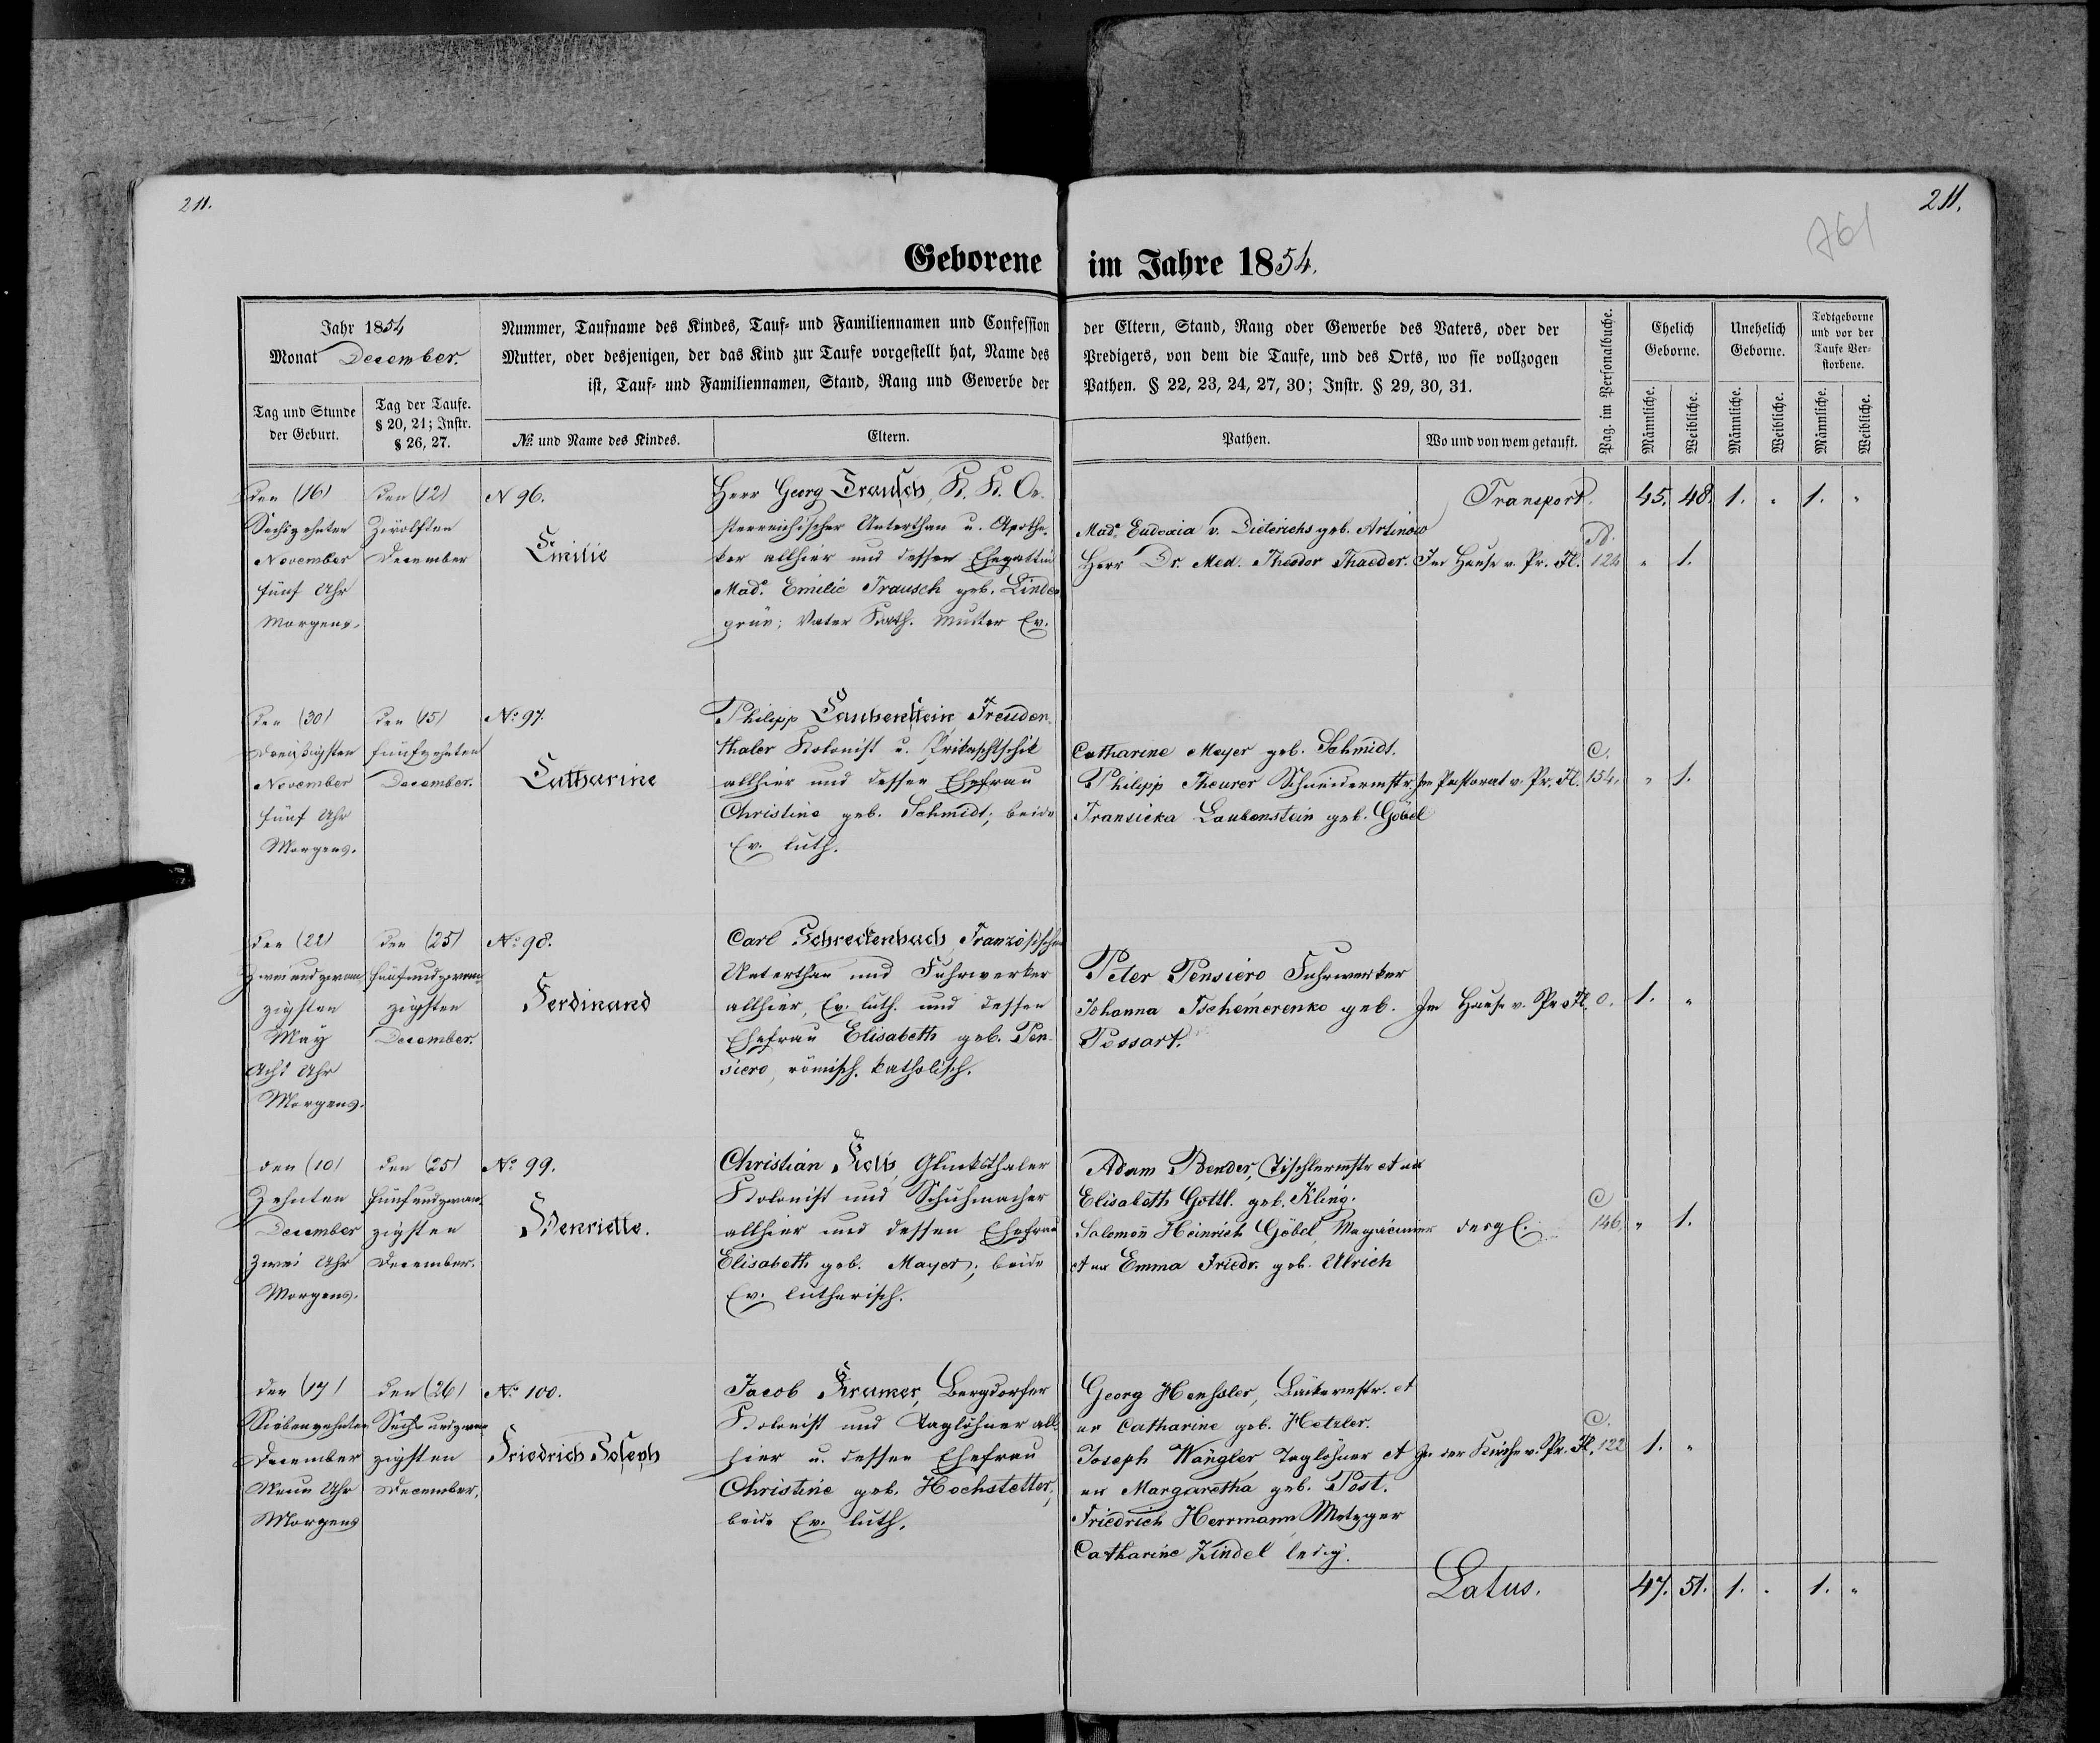 211.
211.
761
Geborene im Jahre 1854.
Jahr 1854
Monat December.
Tag und Stunde der Geburt.
Tag der Taufe. § 20, 21; Instr. § 26, 27.
Nummer, Taufname des Kindes, Tauf- und Familiennamen und Confession der Eltern, Stand, Rang oder Gewerbe des Vaters, oder der
Mutter, oder desjenigen, der das Kind zur Taufe vorgestellt hat, Name des Predigers, von dem die Taufe, und des Orts, wo sie vollzogen
ist, Tauf- und Familiennamen, Stand, Rang und Gewerbe der Pathen. § 22, 23, 24, 27, 30; Instr. § 29, 30, 31.
№ und Name des Kindes.
Eltern.
Pathen.
Wo und von wem getauft.
Pag. im Personalbuche.
Ehelich Geborne.
Unehelich Geborne.
Todtgeborne und vor der Taufe Verstorbene.
Männliche.
Weibliche.
Männliche.
Weibliche.
Männliche.
Weibliche.
Transport.
45. 48. 1. " 1. "
den (16)
Sechszehnten
November
fünf Uhr
Morgens.
den (12)
Zwölften
December
N 96.
Emilie
Herr Georg Trausch, K. K. Oe-
sterreichischer Unterthan u. Apothe-
ker allhier und dessen Ehegattin
Mad.e Emilie Trausch geb. Linde-
grün; Vater Kath. Mutter Ev.
Mad.e Eudoxia v. Dieterichs geb. Artinow
Herr Dr. Med. Theodor Thaeder.
Im Hause v. Pr. Fl.
124
" 1.
den (30)
Dreißigsten
November
fünf Uhr
Morgens.
den (15)
fünfzehnten
December.
No 97.
Catharine
Philipp Laubenstein Freuden-
thaler Kolonist u. Prikaschtschik
allhier und dessen Ehefrau
Christine geb. Schmidt; beide
Ev. luth.
Catharine Meyer geb. Schmidt.
Philipp Theurer Schneidermstr.
Fransiska Laubenstein geb. Göbel
Im Pastorat v. Pr. Fl.
C.
154.
" 1.
den (22)
Zweiundzwan-
zigsten
May
Acht Uhr
Morgens.
den (25)
fünfundzwan-
zigsten
December.
No 98.
Ferdinand
Carl Schreckenbach, Französischer
Unterthan und Fuhrwerker
allhier, Ev. luth. und dessen
Ehefrau Elisabeth geb. Pen-
siero, römisch. katholisch.
Peter Pensiero Fuhrwerker
Johanna Tschemerenko geb.
Possart.
Im Hause v. Pr. Fl.
0.
1. "
den (10)
Zehnten
December
Zwei Uhr
Morgens.
den (25)
fünfundzwan-
zigsten
December.
No 99.
Henriette.
Christian Glücksthaler
Kolonist und Schuhmacher
allhier und dessen Ehefrau
Elisabeth geb. Mayer; beide
Ev. lutherisch.
Adam Bender, Tischlermstr et ux
Elisabeth Gottl. geb. Kling.
Salomon Heinrich Göbel,
et ux Emma Friedr. geb. Ulrich
desgl.
C
146.
" 1.
den (17)
Siebenzehnten
December
Neun Uhr
Morgens
den (26)
Sechsundzwan-
zigsten
December.
No 100.
Friedrich Joseph
Jacob Kramer, Bergdorfer
Kolonist und Taglöhner all-
hier u. dessen Ehefrau
Christine geb. Hochstetter,
beide Ev. luth.
Georg Henssler, Bäckermstr. et
ux Catharine geb. Hetzler.
Joseph Wängler, Taglöhner et
ux Margaretha geb. Post.
Friedrich Herrmann, Metzger
Catharine Zindel ledig.
In der Kirche v. Pr. Fl.
C.
122
1. "
Latus.
47. 51. 1. " 1. "